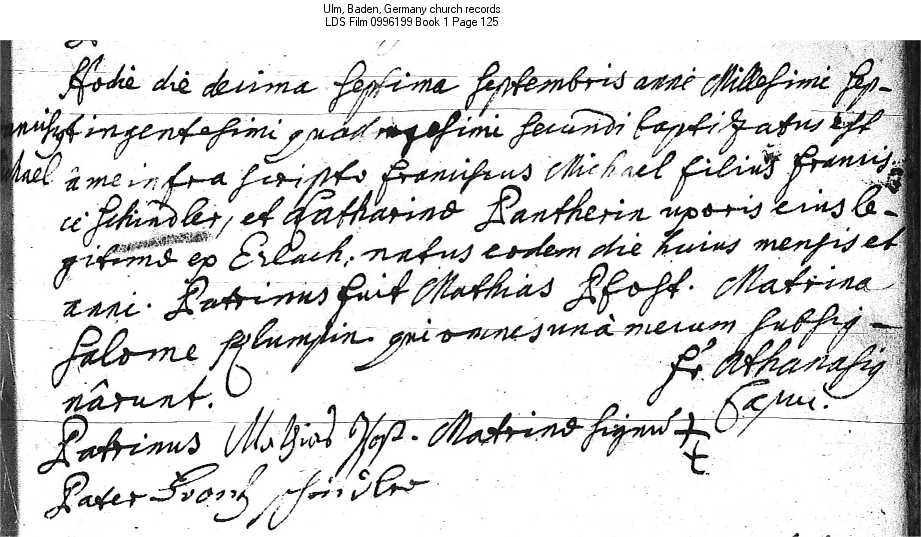 Ulm, Baden, Germany church records
LDS Film 0996199 Book 1 Page 125
Hodie die decima septima septembris anni Millesimi sep-
tingentesimi quadragesimi secundi baptizatus est
â me infra scripto Franciscus Michael filius Francis-
ci Schindler, et Catharinæ Pantherin uxoris eius le-
gitimæ ex Erlach, natus eodem die huius mensis et
anni. Patrinus fuit Mathias Pfost. Matrina
Salome qui omnes unà mecum subsig-
nârunt.
fr. Athanasius
Capuc.
Patrinus Mathias Pfost. Matrinæ signū ++
Pater Frantz schindler